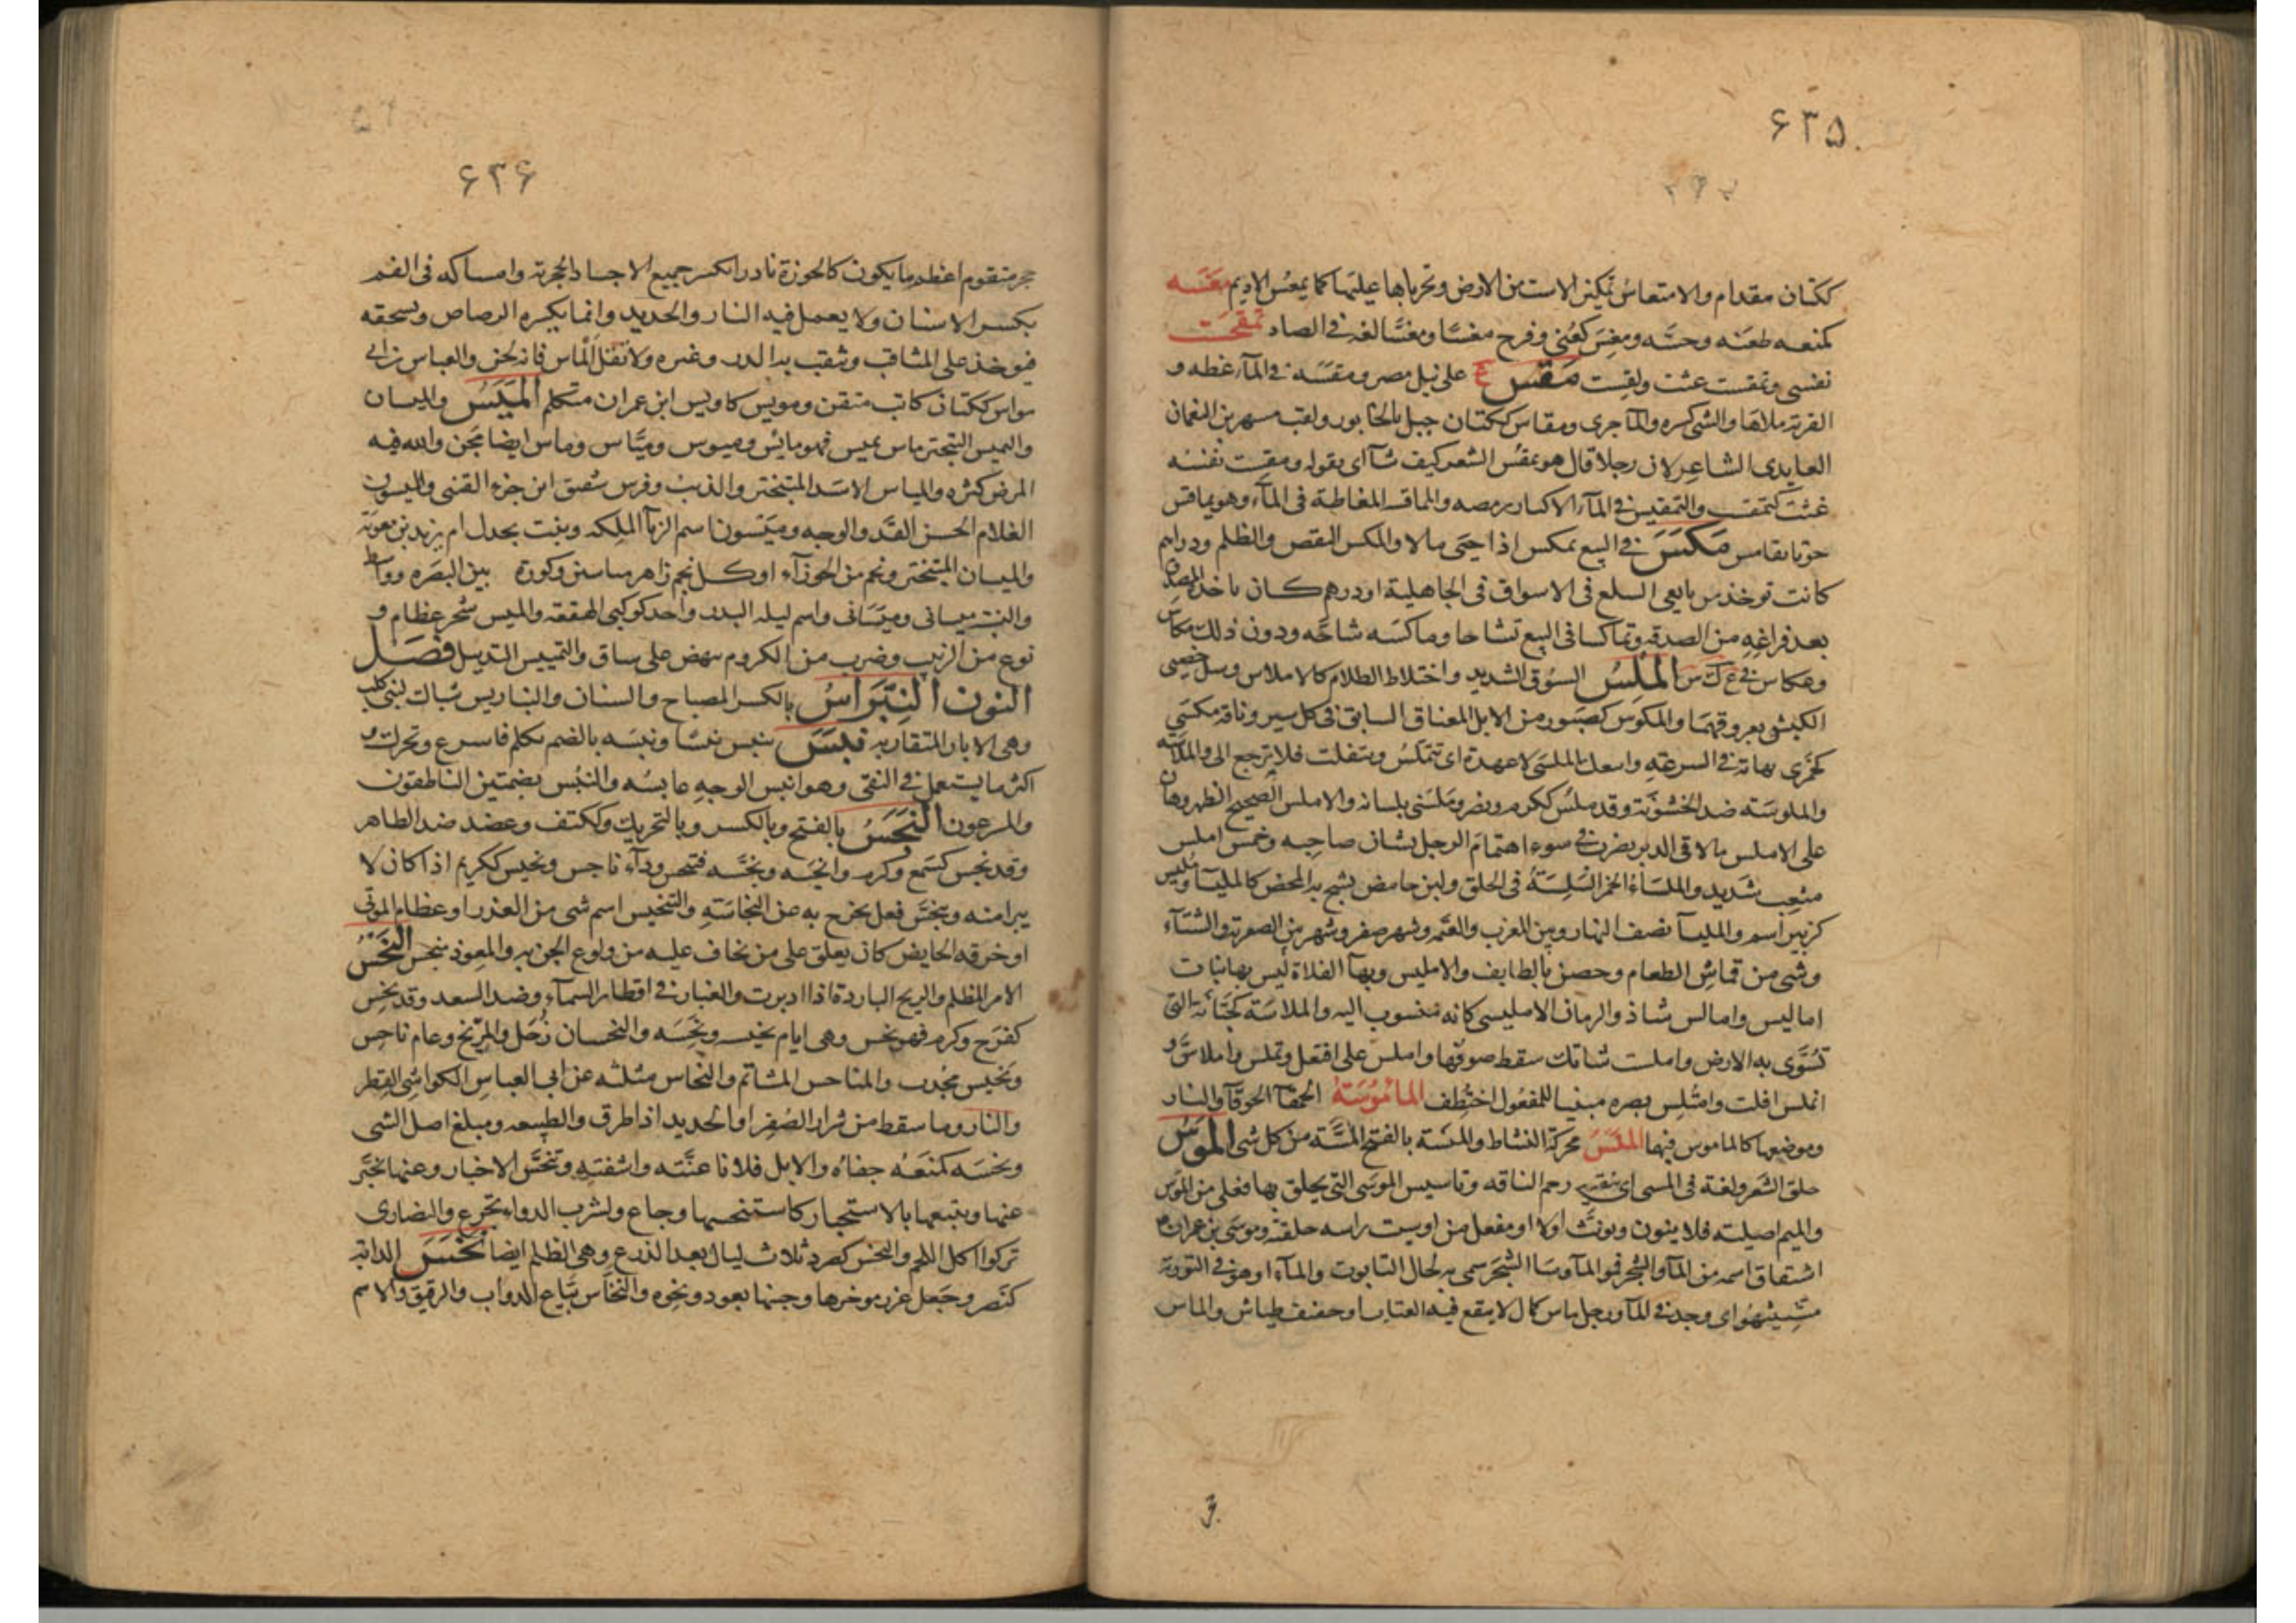 ۶۳۵
ككتان مقدام والامتعاس تمكين الاست من الارض وتحريكها عليها كما يمعس الاديم مغسه
كمنعه طعنه وحسه ومغس كعنى وفرح مغسا ومغسا لغة فى الصاد تمقحست
نفسى وتمقست غثت ولقست مقس ع على نيل مصر ومقسه فى المآء غطه و
القربة ملاها والشى كسره والمآ جرى ومقاس ككتان جبل بالخابور ولقب مسهر بن النعمان
العايدى الشاعر لان رجلا قال هو يمقس الشعر كيف شآ اى يقوله ومقست نفسه
غثت كتمقست والتمقيس فى المآء الاكثار من صبه والمماقسه المغاطة فى المآء وهو يماقس
حوتا يقامس مكس فى البيع يمكس اذا جبى مالا والمكس النقص والظلم ودراهم
كانت توخذ من بايعى السلع فى الاسواق فى الجاهلية او درهم كان ياخذه المصدق
بعد فراغه من الصدقه وتماكسا فى البيع تشاحا وماكسه شاحه ودون ذلك مكاس
وعكاس فى ع ك س الملس السوق الشديد واختلاط الظلام كالاملاس وسل خصيى
الكبش بعروقهما والملوس كصبور من الابل المعناق السابق فى كل سير وناقة ملسى
كجمزى نهاية فى السرعة وابيعك الملسى لا عهدة اى تتملس وتتفلت فلا ترجع الى والملاسه
والملوسه ضد الخشونة وقد ملس ككرم ونصر وملسنى بلسانه والاملس الصحيح الظهر وهان
على الاملس ما لاقى الدبر يضرب فى سوء اهتمام الرجل بشان صاحبه وخمس املس
متعب شديد والملساء الخمر السلسة فى الحلق ولبن حامض يشج به المحض كالمليسآ ومليس
كزبير اسم والمليسآ نصف النهار وبين المغرب والعتمه وشهر صفر وشهر بين الصفرية والشتآء
وشى من قماش الطعام وحصن بالطايف والامليس وبهآ الفلاة ليس بها نبات
اماليس وامالس شاذ والرمان الامليسى كانه منسوب اليه والملاسه كجبانه التى
تسوى به الارض واملست شاتك سقط صوفها واملس على افتعل وتملس واملاس و
انملس افلت وامتلس بصره مبنيا للمفعول اختطف الماموسة الحمقآ الخرقآ والنار
وموضعها كالماموس فيها الملنس محركة النشاط والمنسة بالفتح المسنة من كل شى الموس
حلق الشعر ولغة فى المسى اى تنقية رحم الناقه وتاسيس الموسى التى يحلق بها فعلى من الموس
والميم اصلية فلا ينون ويونث اولا او مفعل من اوسيت راسه حلقته وموسى بن عمران
اشتقاق اسمه من المآ والشجر فمو المآ وسا الشجر سمى به لحال التابوت والمآء او هو فى التورية
مشيتيهو اى وجد فى المآ ورجل ماس كمال لا ينفع فيه العتاب او خفيف طياش والماس
۶۳۶
حجر متقوم اعظم ما يكون كالجوزة نادرا يكسر جميع الاجساد الحجرية وامساكه فى الفم
يكسر الاسنان ولا يعمل فيه النار والحديد وانما يكسره الرصاص ويسحقه
فيوخذ على المثاقب وثقب به الدر وغيره ولا تقل الماس فانه لحن والعباس بن ابى
مواس ككتان كاتب متقن ومويس كاويس ابن عمران متكلم الميس والميسان
والتميس التبختر ماس يميس فهو مائس وميوس ومياس وماس ايضا مجن والله فيه
المرض كثره والمياس الاسد المتبختر والذئب وفرس شقيق ابن جزء القتبى والميسون
الغلام الحسن القد والوجه وميسون اسم الزبآ الملكه وبنت بحدل ام يزيد بن معوية
والميسان المتبختر ونجم من الجوزآء او كل نجم زاهر مياسين وكورة بين البصره وواسط
والنسبة ميسانى وميسنانى واسم ليلة البدر واحد كوكبى الهقعه والميس شجر عظام و
نوع من الزبيب وضرب من الكروم ينهض على ساق والتمييس التذييل فصل
النون النبراس بالكسر المصباح والسنان والنباريس شباك لبنى كلب
وهى الابار المتقاربه نبس ينبس نبسا ونبسه بالضم تكلم فاسرع وتحرك و
اكثر ما يستعمل فى النفى وهو انبس الوجه عابسه والنبس بضمتين الناطقون
والمسرعون النجس بالفتح وبالكسر وبالتحريك وككتف وعضد ضد الطاهر
وقد نجس كسمع وكرم وانجسه ونجسه فتنجس ودآء ناجس ونجيس ككريم اذا كان لا
يبرا منه وتنجس فعل يخرج به عن النجاسة والتنجيس اسم شى من العذر او عظام الموتى
او خرقة الحايض كان يعلق على من يخاف عليه من ولوع الجن به والمعوذ منجس النحس
الامر المظلم والريح الباردة اذا ادبرت والغبار فى اقطار السمآء وضد السعد وقد نحس
كفرح وكرم فهو نحس وهى ايام نحيسه ونحسه والنحسان زحل والمريخ وعام ناحس
ونحيس مجدب والمناحس المشائم والنحاس مثلثه عن ابى العباس الكواشى القطر
والنار وما سقط من شرار الصفر او الحديد اذا طرق والطبيعه ومبلغ اصل الشى
ونحسه كمنعه جفاه والابل فلانا عنته واشقته وتنحس الاخبار وعنها تخبر
عنها وتتبعها بالاستخبار كاستنحسها وجاع ولشرب الدواء تجوع والنصارى
تركوا اكل اللحم والنحس كصرد ثلاث ليال بعد الدرع وهى الظلم ايضا نخس الدابة
كنصر وجعل غرز موخرها وجنبها بعود ونحوه والنخاس بياع الدواب والرقيق والاسم